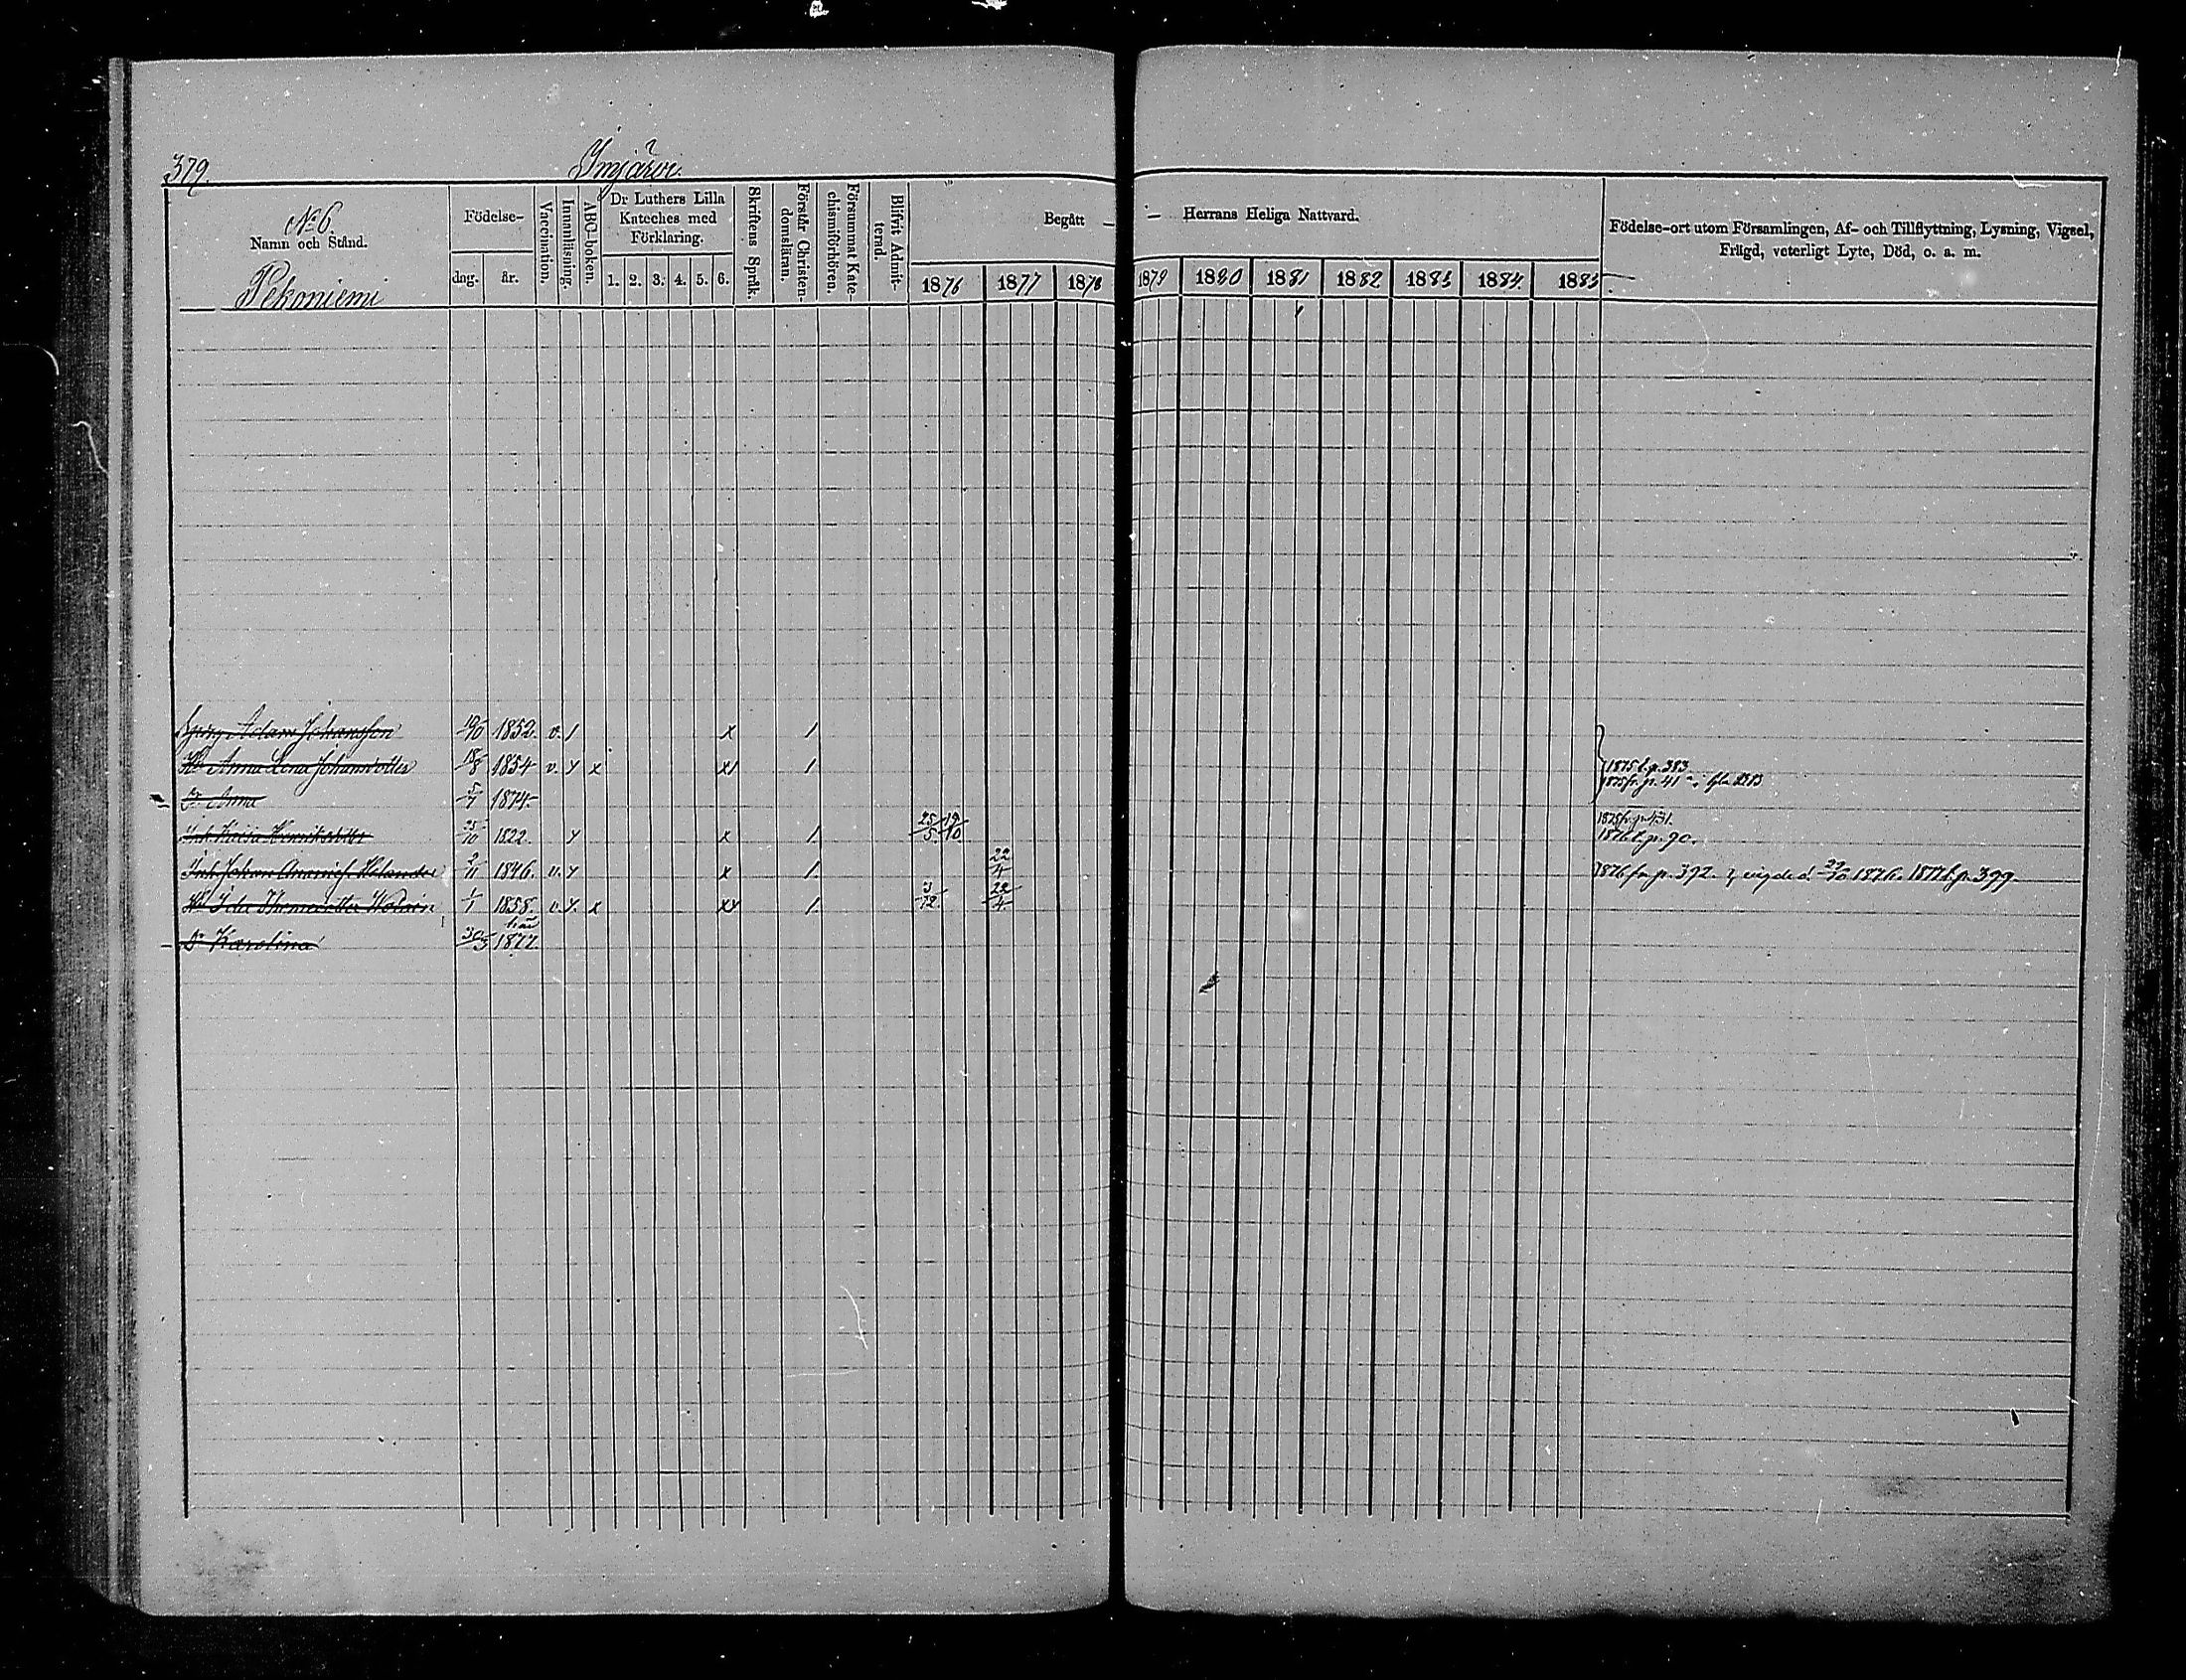 379.
Imjärvi.
No 6.
Namn och Stånd.
Pekoniemi
Födelse-
dag. år.
Vaccination.
Innanläsning.
ABC-boken.
Dr Luthers Lilla
Kateches med
Förklaring.
1. 2. 3. 4. 5. 6.
Skriftens Språk.
Förstår Christen-
domsläran.
Försummat Kate-
chismiförhören.
Blifvit Admit-
terad.
Begått — — Herrans Heliga Nattvard.
1876 1877 1878 1879 1880 1881 1882 1883 1884 1885
Födelse-ort utom Församlingen, Af- och Tillflyttning, Lysning, Vigsel,
Frägd, veterligt Lyte, Död, o. a. m.
Adam Johansson 19/10 1852. v. 1 x 1
Hu Anna Lena Johansdotter 18/8 1854 v. y x x1 1 1875 t. p. 383
D. Anna 5/7 1874. 1875 fr. p. 41
Kaisa Henriksdotter 25/10 1822. y x 1. 25/5 19/10 1876 t. p. 90.
Inh Johan Helander 2/11 1846. v. y x 1. 22/4 1876 fr. p. 392. vigde d. 29/10 1876. 1877 t. p. 399.
Hu 1/1 1858. v. y. x xy 1. 3/12. 22/4
D. Karolina 30/3 1877.